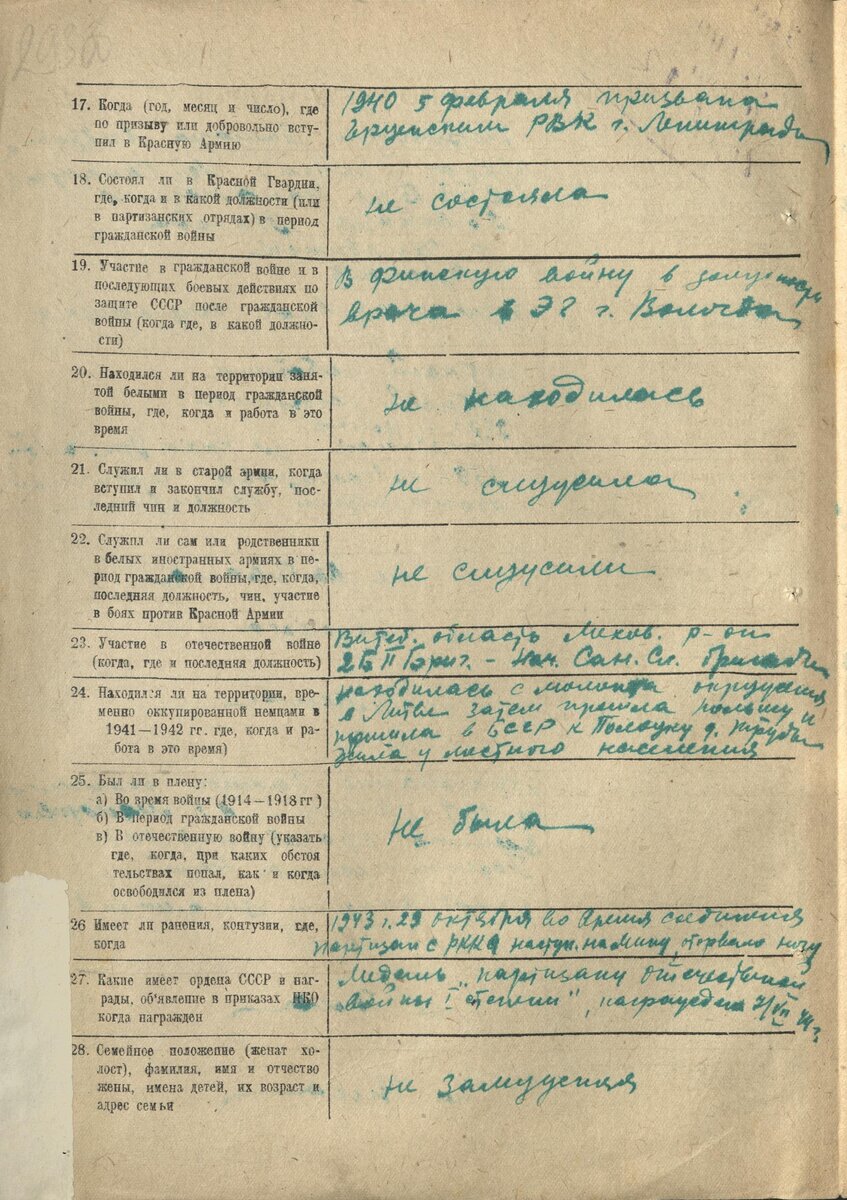 2936
17. Когда (год, месяц и число), где
по призыву или добровольно всту-
пил в Красную Армию
1940 5 февраля призвана
РВК г. Ленинграда
18. Состоял ли в Красной Гвардии,
где, когда и в какой должности (или
в партизанских отрядах) в период
гражданской войны
не состояла
19. Участие в гражданской войне и в
последующих боевых действиях по
защите СССР после гражданской
войны (когда где, в какой должно-
сти)
В Финскую войну в должности
врача в ЭГ г. Вологда
20. Находился ли на территории заня-
той белыми в период гражданской
войны, где, когда и работа в это
время
не находилась
21. Служил ли в старой армии, когда
вступил и закончил службу, пос-
ледний чин и должность
не служила
22. Служил ли сам или родственники
в белых иностранных армиях в пе-
риод гражданской войны, где, когда,
последняя должность, чин, участие
в боях против Красной Армии
не служили
23. Участие в отечественной войне
(когда, где и последняя должность)
Витеб. область Мехов. р-он
Бриг. - Нач. Сан. Сл. бригады
24. Находился ли на территории, вре-
менно оккупированной немцами в
1941—1942 гг. где, когда и ра-
бота в это время)
находилась с момента окружения
в Литве затем прошла польшу и
пришла в БССР к Полоцку д. Труды
Жила у местного населения
25. Был ли в плену:
а) Во время войны (1914—1918 гг )
б) В период гражданской войны
в) В отечественную войну (указать
где, когда, при каких обстоя
тельствах попал, как и когда
освободился из плена)
не была
26 Имеет ли ранения, контузии, где,
когда
1943 г. 29 октября во время соединения
партизан с РККА наступ. на мину оторвало ногу
27. Какие имеет ордена СССР и наг-
рады, об'явление в приказах НКО
когда награжден
Медаль „партизану отечественной
войны I степени", награждена 7/VII 44 г.
28. Семейное положение (женат хо-
лост), фамилия, имя и отчество
жены, имена детей, их возраст и
адрес семьи
не замужняя